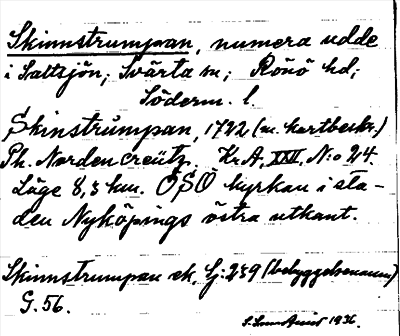 Skinnstrumpan, numera udde
i Saltsjön; Svärta sn; Rönö hd;
Söderm. l.
Skinstrumpan, 1722 (m. kartbeskr.)
Ph. Nordencreütz. Kr.A, XXII, N:o 24.
Läge 8,3 km. ÖSÖ kyrkan i sta-
den Nyköpings östra utkant.
Skinnstrumpan ek. Gj: 239 (bebyggelsenamn)
G. 56.
1936.